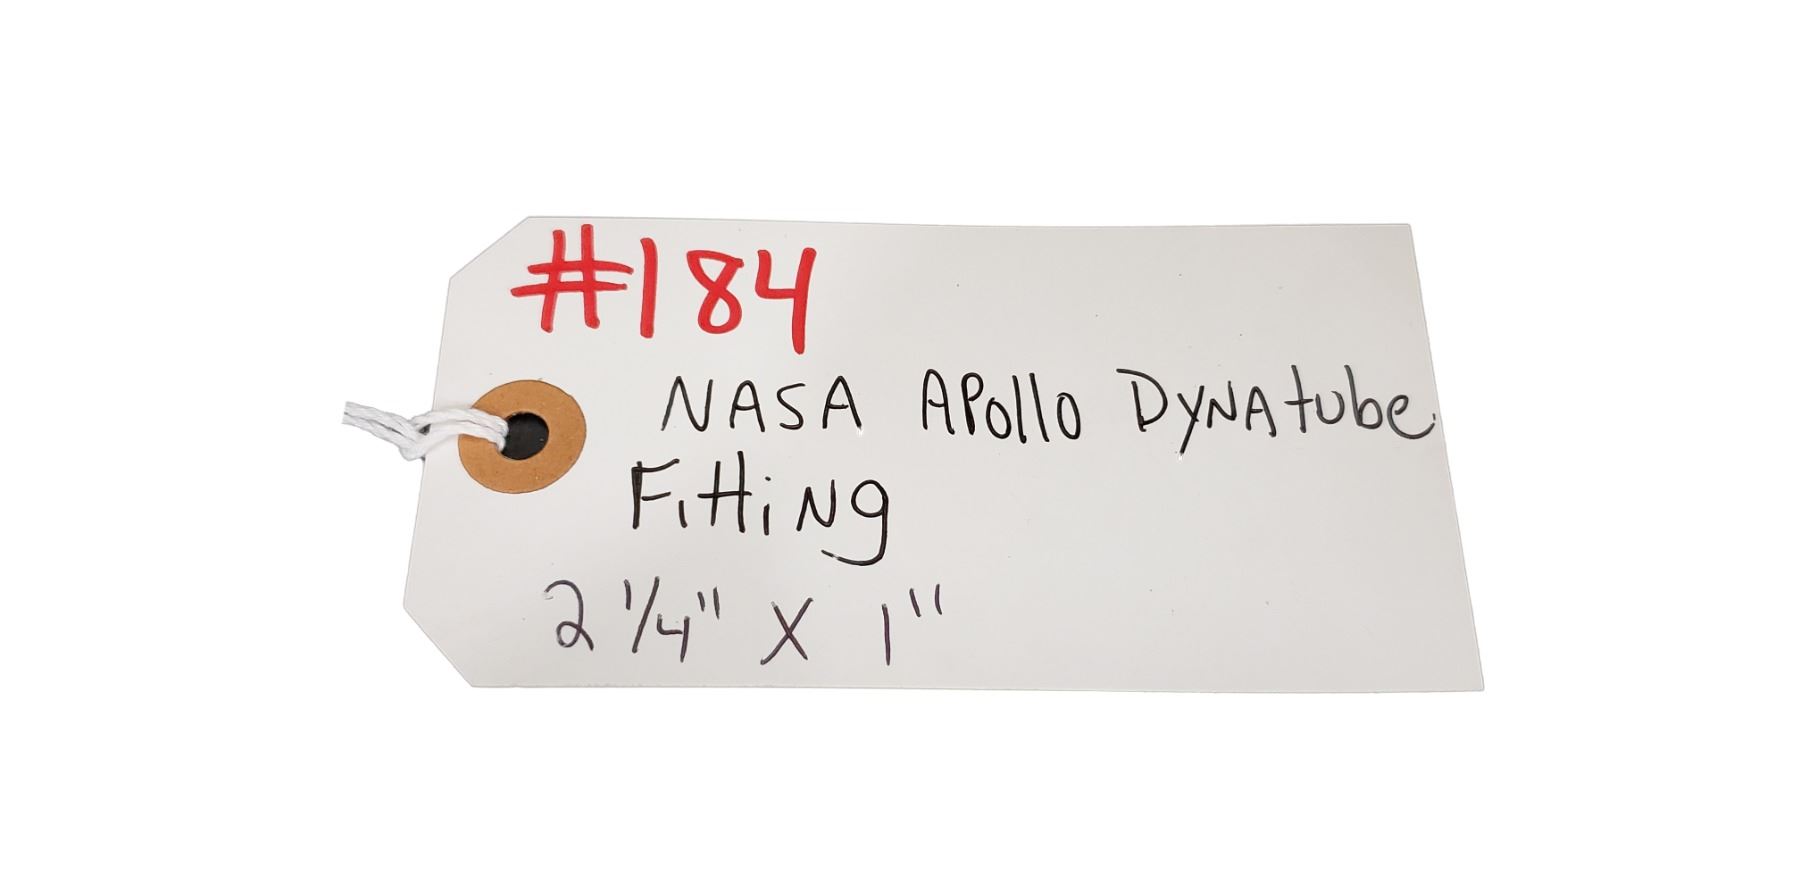 #184
NASA APollo DYNAtube
FittiNg
2 1/4" X 1"